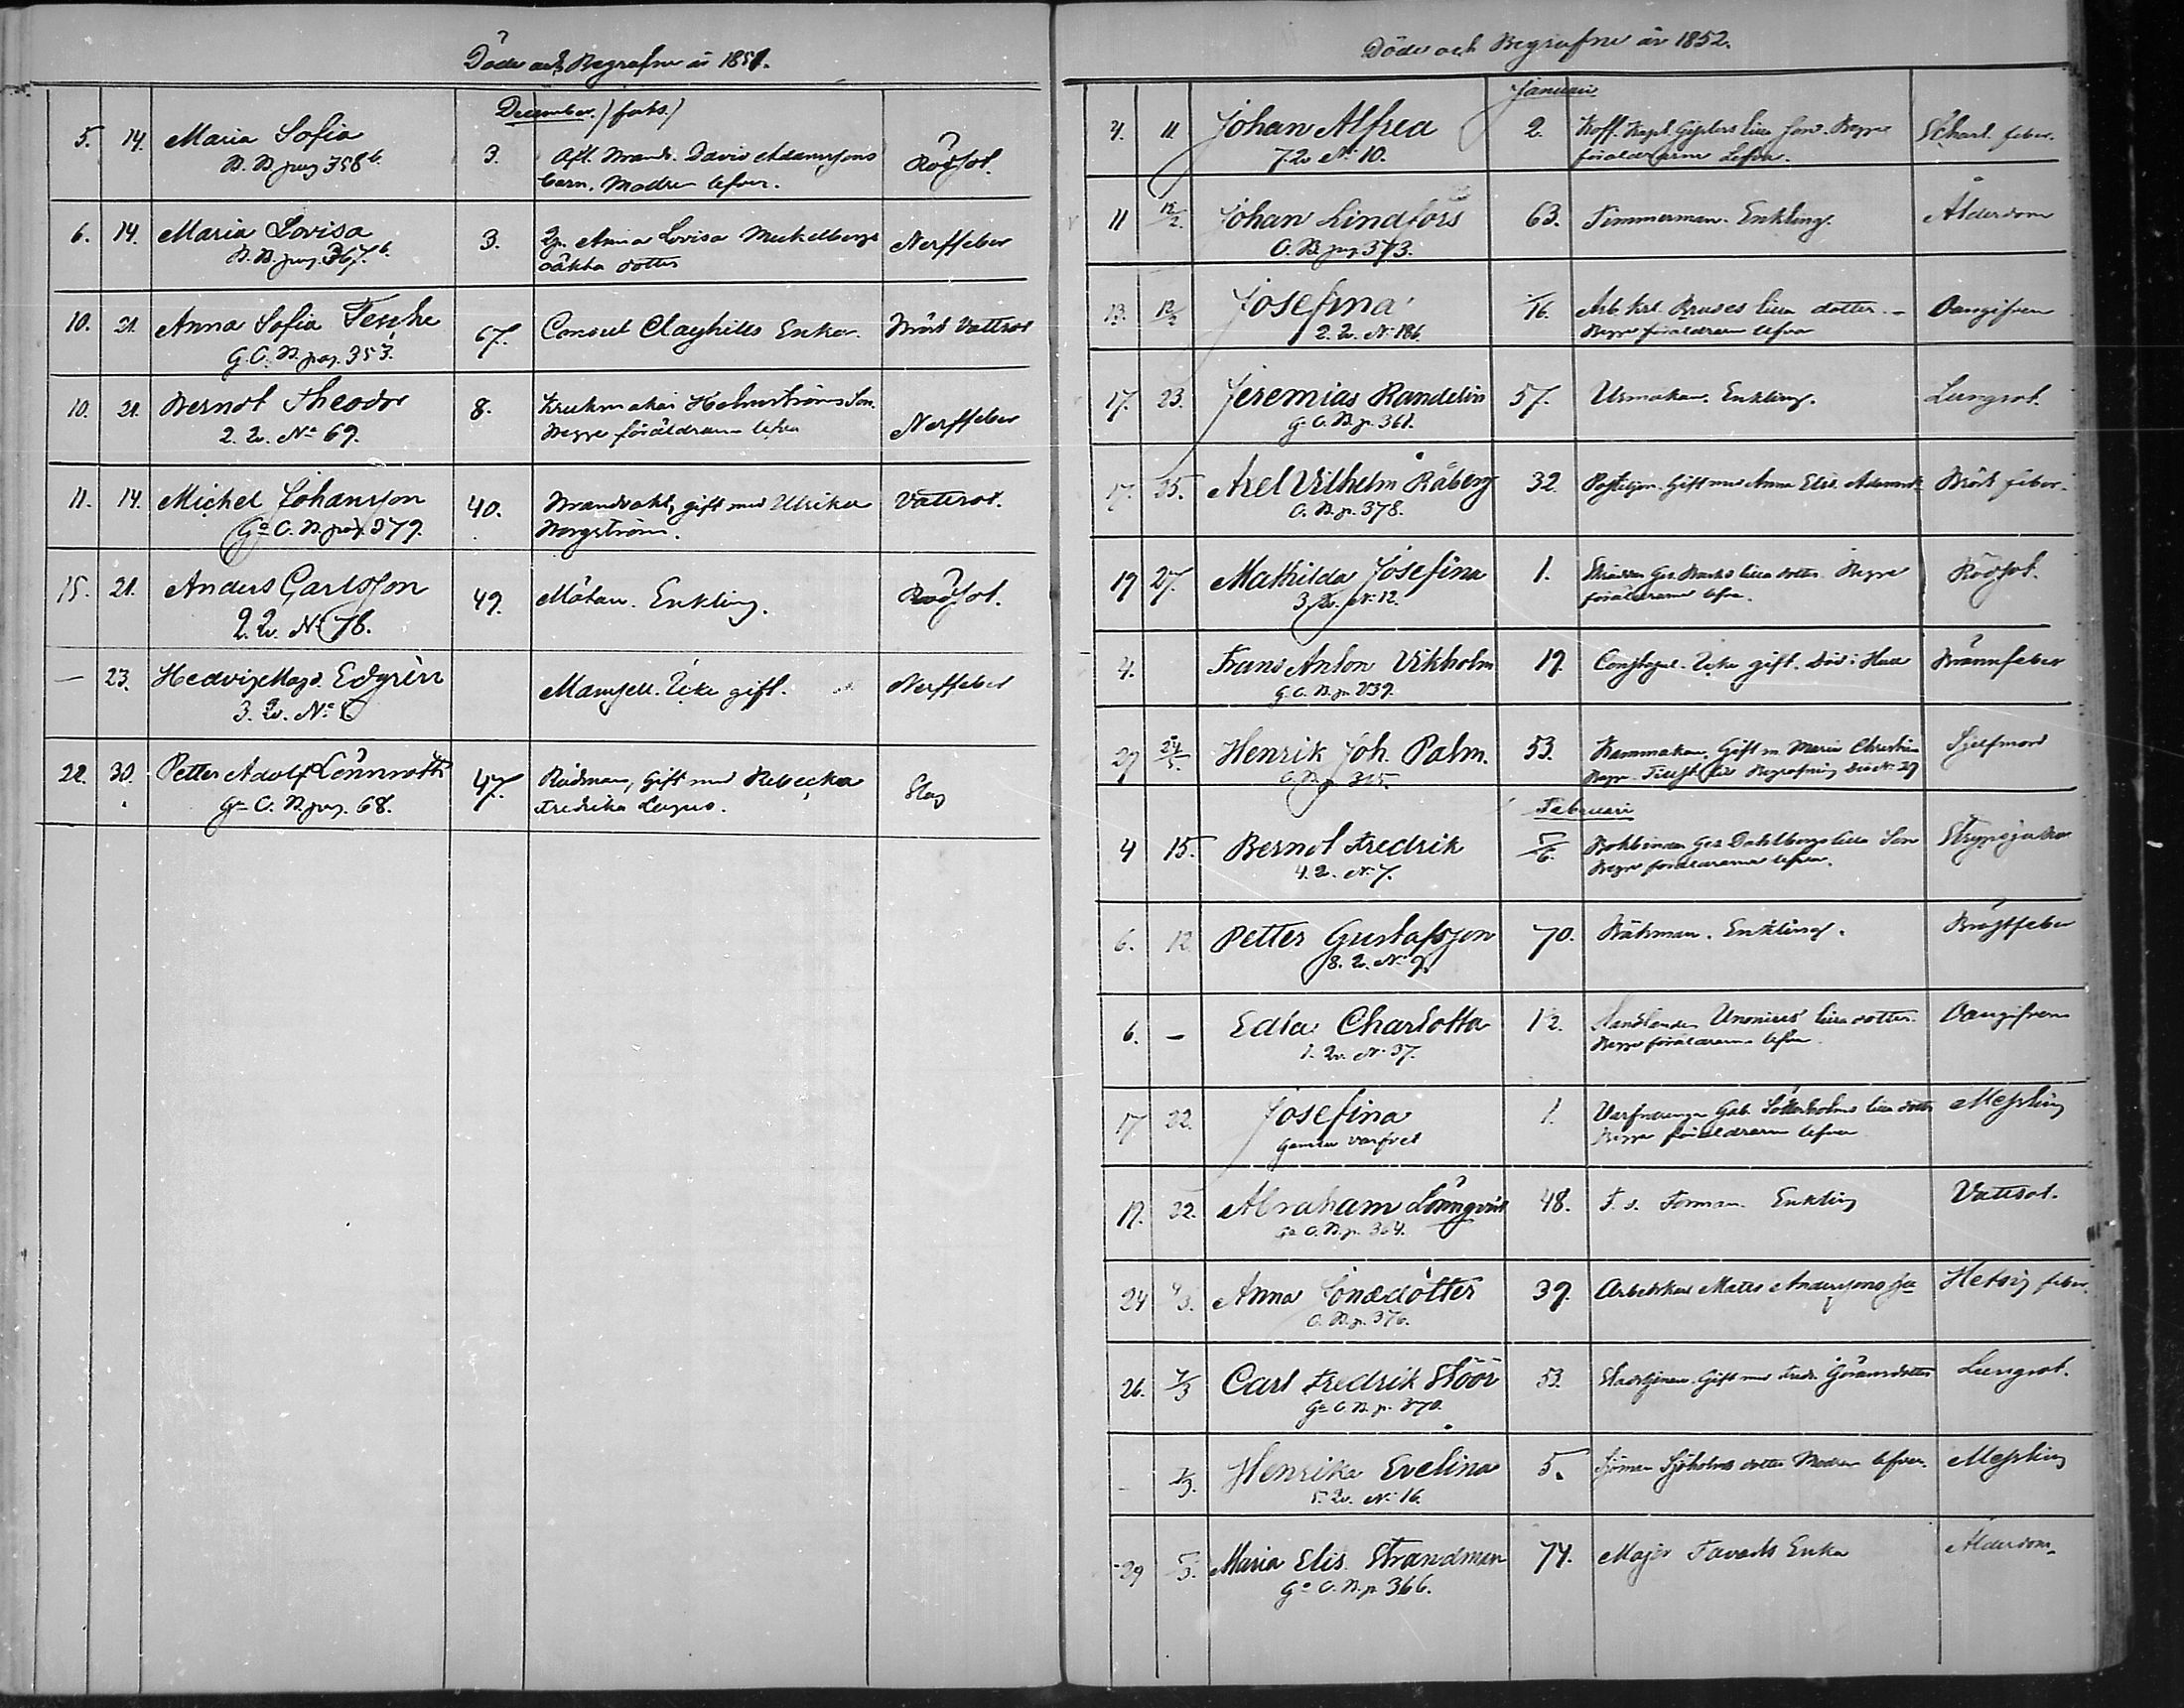 Döde och Begrafne år 1851.
December. / forts. /
5. 14. Maria Sofia 3. Afl. Brandv. David Adamssons Rödsot.
B. B. pag 358 b. barn. Modren lefver.
6. 14. Maria Lovisa 3. Anna Lovisa Meckelbergs Nerffeber
B. B. pag. 367. b. oäkta dotter
10. 21. Anna Sofia Tesche 67. Consul Clayhills Enka. Bröst Vattsot
G. C. B. pag. 353.
10. 21. Berndt Theodor 8. Krukmakar Holmströms Son. Nerffeber
2. Qv. No 69. Begge föräldrarne lefva
11. 14. Michel Johansson 40. Brandvakt, gift med Ulrika Vattsot.
Ga C. B. pag. 379. Borgström.
15. 21. Anders Carlsson 49. Mätare. Enkling. Rödsot.
2. Qv. No 78.
— 23. Hedvig Magd. Edgrèn Mamsell. Icke gift. Nerffeber
3. Qv. No
22. 30. Petter Adolf Lönnroth 47. Rådman, Gift med Rebecka Slag
Ga C. B. pag. 68. Fredrika Lagus.
Döde och Begrafne år 1852.
Januari
4. 11 Johan Alfred 2. Koff. Kapt. lilla son. Begge Scharl. feber.
7. Qv No 10. föräldrarne Lefva.
11 15/2. Johan Lindfors 63. Timmerman. Enkling. Ålderdom
C. B. pag. 373.
13. Josefina 1/16. Arb. krl. Bruses lilla dotter. Oangifven
2. Qv. No 186. Begge föräldrarne lefva
17. 23. Jeremias Randelin 57. Urmakare. Enkling. Lungsot.
Ga C. B. p. 361.
17. 25. Axel Vilhelm Råberg 32. Postiljon. Gift med Anna Elis. Bröst feber.
C. B. p. 378.
19 27. Mathilda Josefina 1. Skräddar Ges. lilla dotter. Begge Rödsot.
3. Qv. No 12. föräldrarne lefva.
4. Frans Anton Vikholm 19. Icke gift. Död i Brännfeber
G. C. B. p. 239.
29 24/5. Henrik Joh. Palm. 53. Kammakare. Gift m. Maria Christina Sjelfmord
C. B. p. 315. Begrafning
Februari
4 15. Bernd Fredrik 5/6. Bokbindar Ges. Dahlbergs lilla Son Strypsjuka
4. Qv. No 7. Begge föräldrarne lefva.
6. 12 Petter Gustafsson 70. Båtsman. Enkling. Bröstfeber
8. Qv. No 9.
6. — Edla Charlotta 1/2. Handlanden Unonius' lilla dotter. Oangifven
1. Qv. No 37. Begge föräldrarne lefva
17 22. Josefina 1. Gab. Söderholms lilla dotter Messling
Gamla varfvet Begge föräldrarne lefva
19. 22. Abraham Lönnqvist 48. F. d. Forman. Enkling Vattsot.
Ga C. B. p. 364.
24 /3. Anna Jonædotter 39. Arbetskarl Matts Anderssons Hetsig feber.
C. B. p. 376.
26. 7/3 Carl Fredrik Stöör 53. Stadstjenare. Gift med Fred. Göransdotter Lungsot.
Ga C. B. p. 370.
— 7/3. Henrika Evelina 5. Sjöman Sjöholms dotter Modren lefver. Messling
5. Qv. No 16.
29 5. Maria Elis. Strandman 74. Major Tavasts Enka Ålderdom
Ga C. B. p. 366.